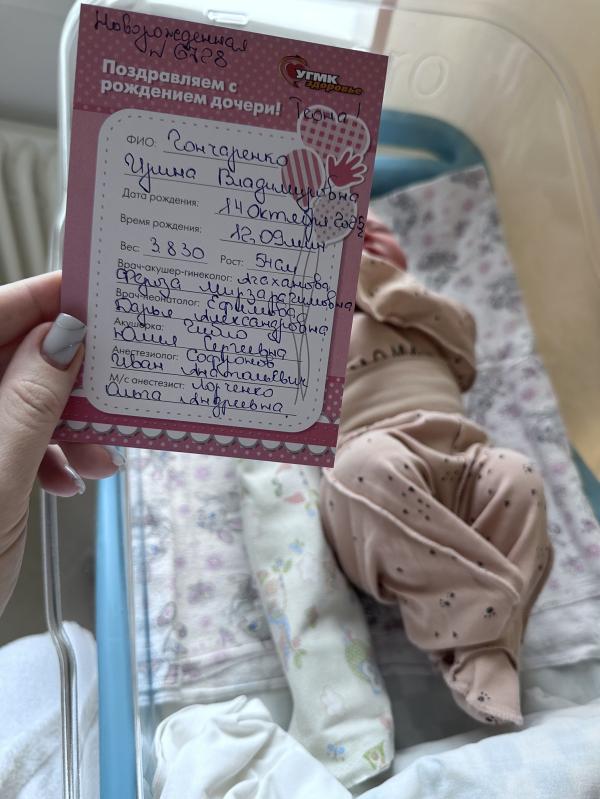 Новорожденная
N 6728
УГМК
здоровье
Поздравляем с
рождением дочери!
Теона!
ФИО: Гончаренко
Ирина Владимировна
Дата рождения: 14 Октября 2025
Время рождения: 12, 09 мин
Вес: 3830 Рост: 54см
Врач-акушер-гинеколог:
Врач-неонатолог:
Дарья Александровна
Акушерка:
Юлия Сергеевна
Анестезиолог: Софронов
Иван Анатольевич
М/с анестезист:
Ольга Андреевна